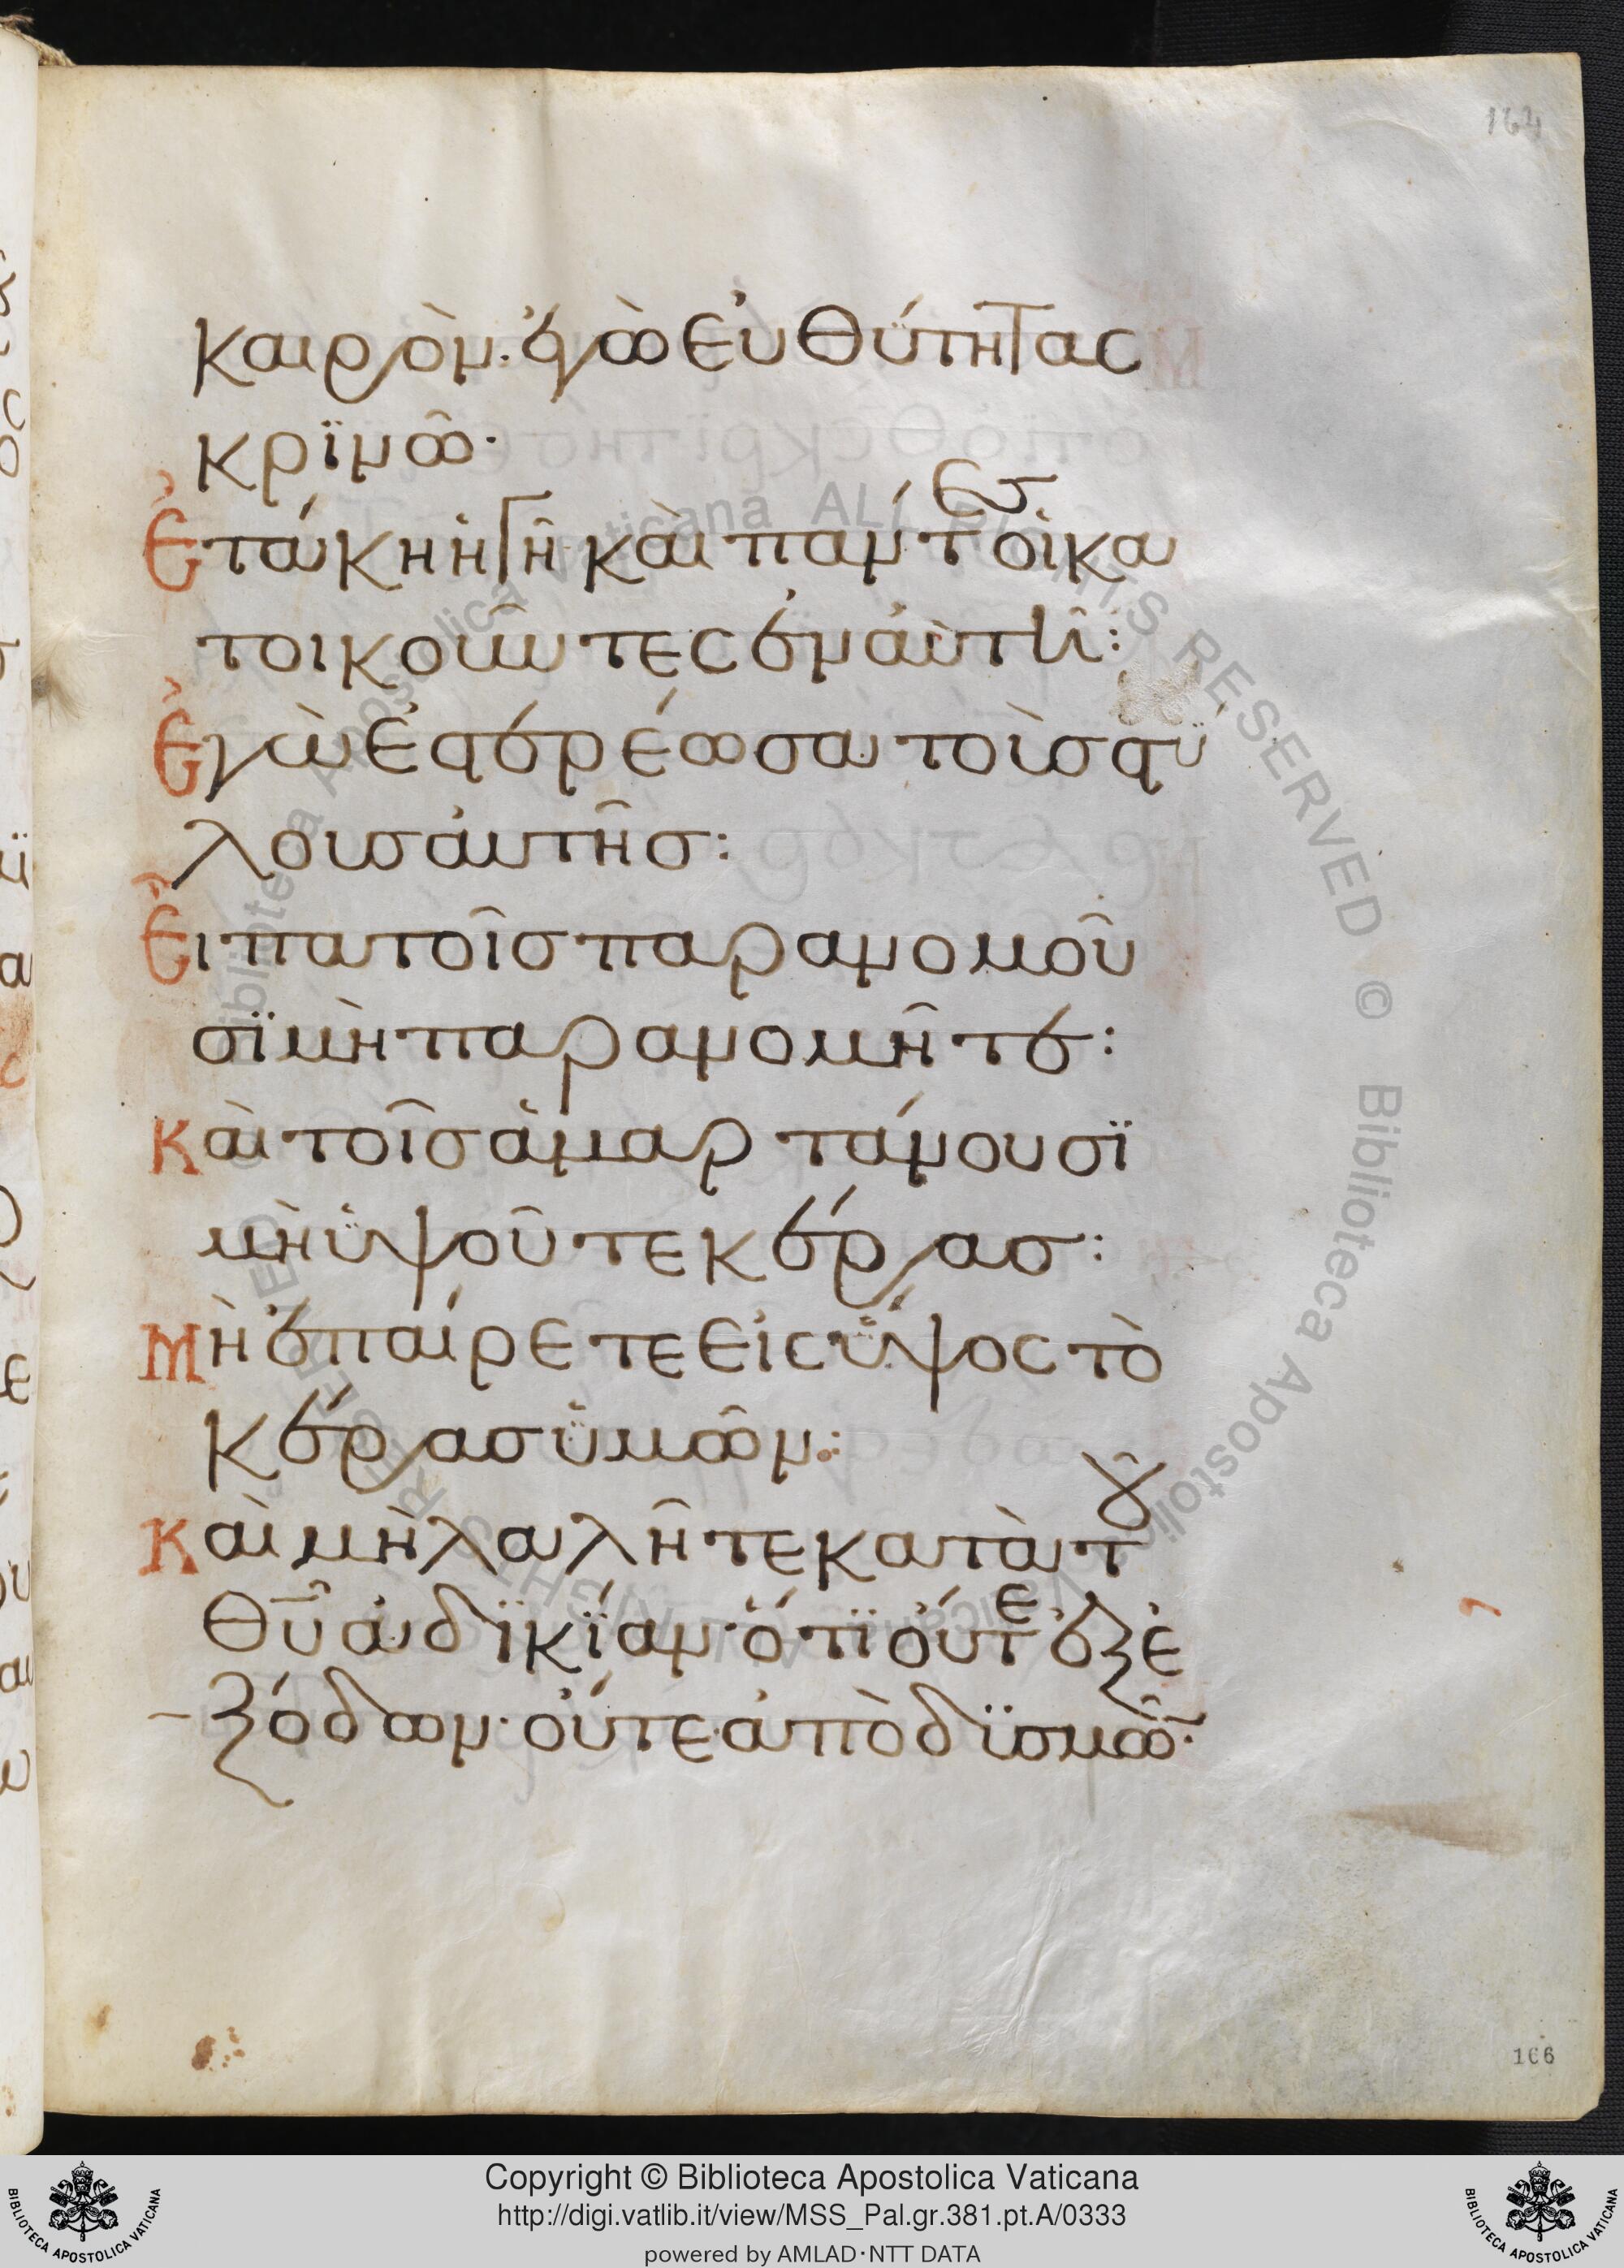 164
καιρὸν· ἐγὼ εὐθύτητας
κρϊνῶ·
Ἐτάκη ἡ γῆ· καὶ πάντες οἱ κα
τοικοῦντες ἐν αὐτῆ:
Ἐγὼ ἐστερέωσα τοὺς στύ
λους αὐτῆς:
Εἶπα τοῖς παρανομοῦ
σϊ μὴ παρανομῆτε:
Καὶ τοῖς ἁμαρτάνουσϊ
μὴ ὑψοῦτε κέρας:
Μὴ ἐπαίρετε εἰς ὕψος τὸ
κέρας ὑμῶν:
Καὶ μὴ λαλῆτε κατὰ τοῦ
θῦ ἀδϊκΐαν· ὅτϊ οὔτε ἐξ ἐ
ξόδων· οὔτε ἀπὸ δϋσμῶ·
166
© Biblioteca Apostolica Vaticana ALL RIGHTS RESERVED © Biblioteca Apostolica Vaticana ALL RIGHTS RESERVED
Copyright © Biblioteca Apostolica Vaticana
http://digi.vatlib.it/view/MSS_Pal.gr.381.pt.A/0333
powered by AMLAD·NTT DATA
BIBLIOTECA APOSTOLICA VATICANA
BIBLIOTECA APOSTOLICA VATICANA